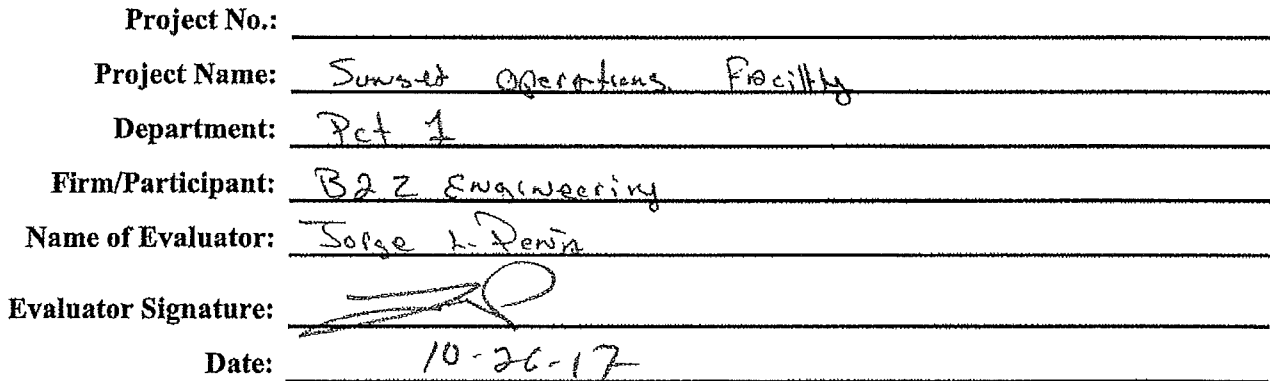 Project No.:
Project Name: Sunset Operations Facility
Department: Pct 1
Firm/Participant: B2Z Engineering
Name of Evaluator: Jorge L. Peña
Evaluator Signature:
Date: 10-26-17